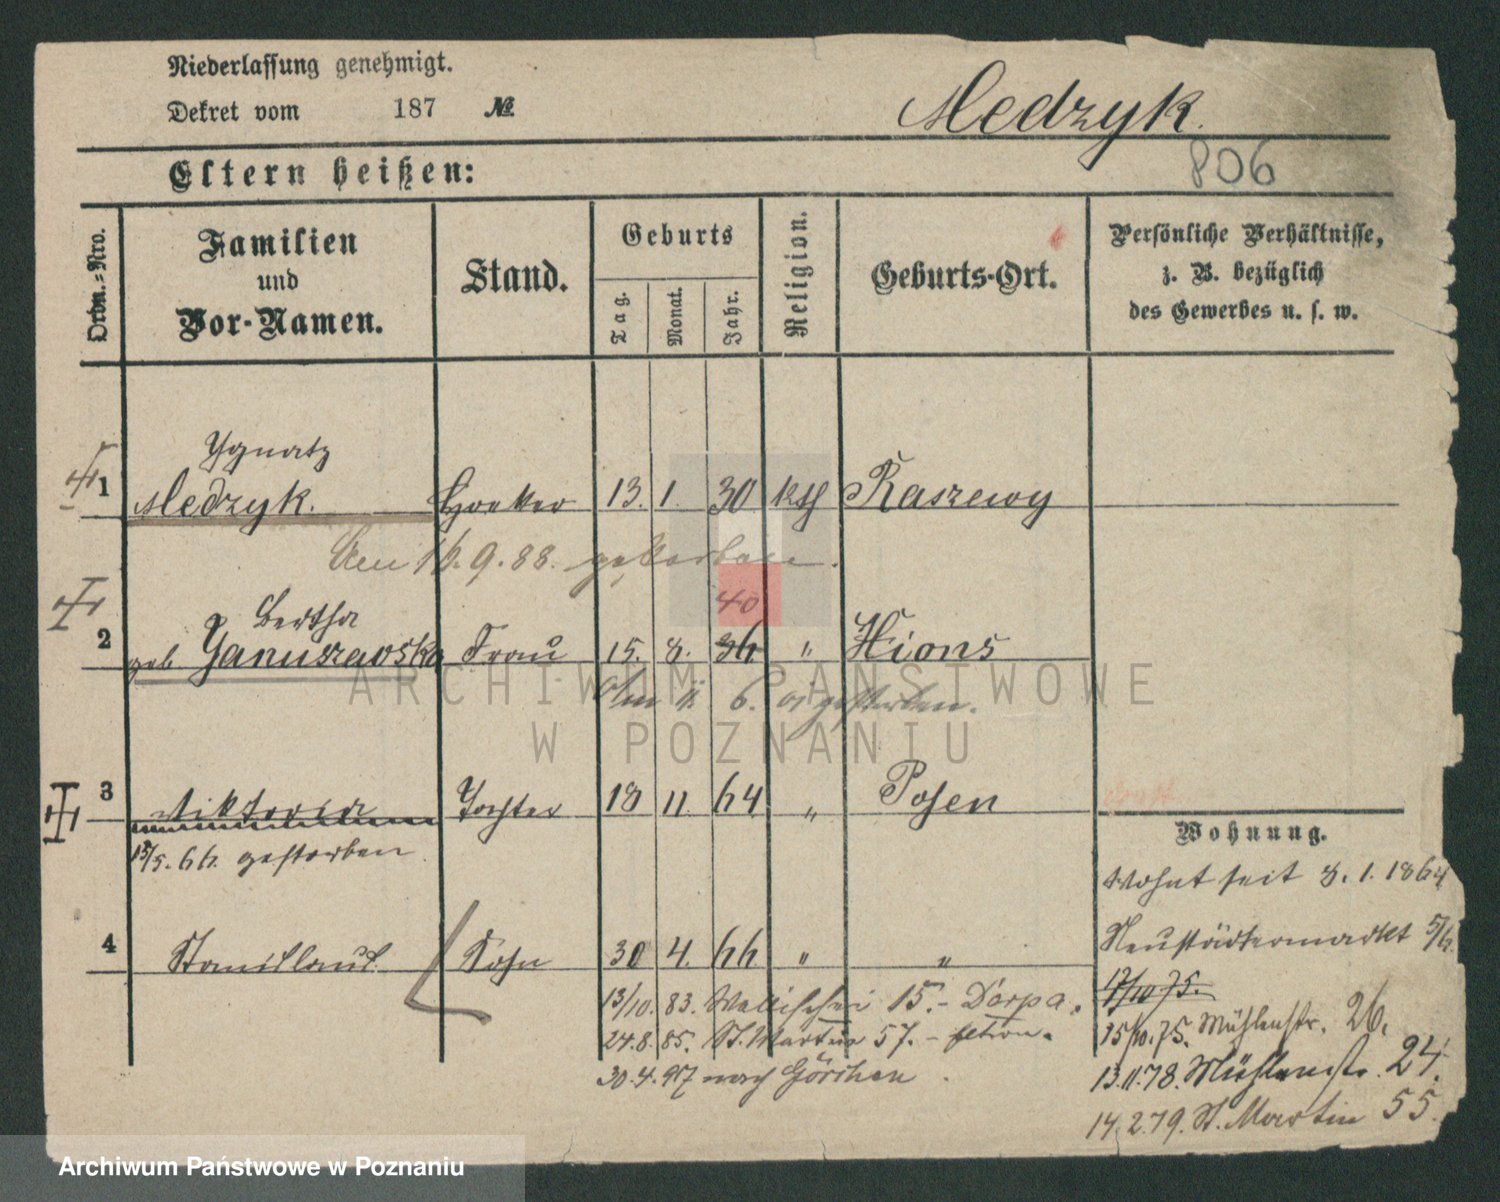 Niederlassung genehmigt.
Dekret vom 187 №
Medzyk.
806
Eltern heißen:
Ordn.-Nro.
Familien
und
Vor-Namen.
Stand.
Geburts
Tag.
Monat.
Jahr.
Religion.
Geburts-Ort.
Persönliche Verhältnisse,
z. B. bezüglich
des Gewerbes u. s. w.
Ygnatz
1 Medzyk. 13. 1. 30 kth Raszewy
Am 16. 9. 88. gestorben.
40
Bertha
2 geb Januszewska Frau 15. 8. 36 " Xions
Am 6. gestorben.
3 Viktoria Tochter 18 11. 64 " Posen
15/5. 66. gestorben
4 Stanislaus Sohn 30 4. 66 " "
13/10. 83. Wallischei 15.- Dorpa.
24.8.85. St. Martin 57. -
30.4.97 nach Görchen
Wohnung.
Wohnt seit 8. 1. 1864
Neustädtermarkt 5/6.
15/10.75. Mühlenstr. 26.
13.11.78. Mühlenstr. 24.
14.2.79. St. Martin 55.
ARCHIWUM PAŃSTWOWE
W POZNANIU
Archiwum Państwowe w Poznaniu